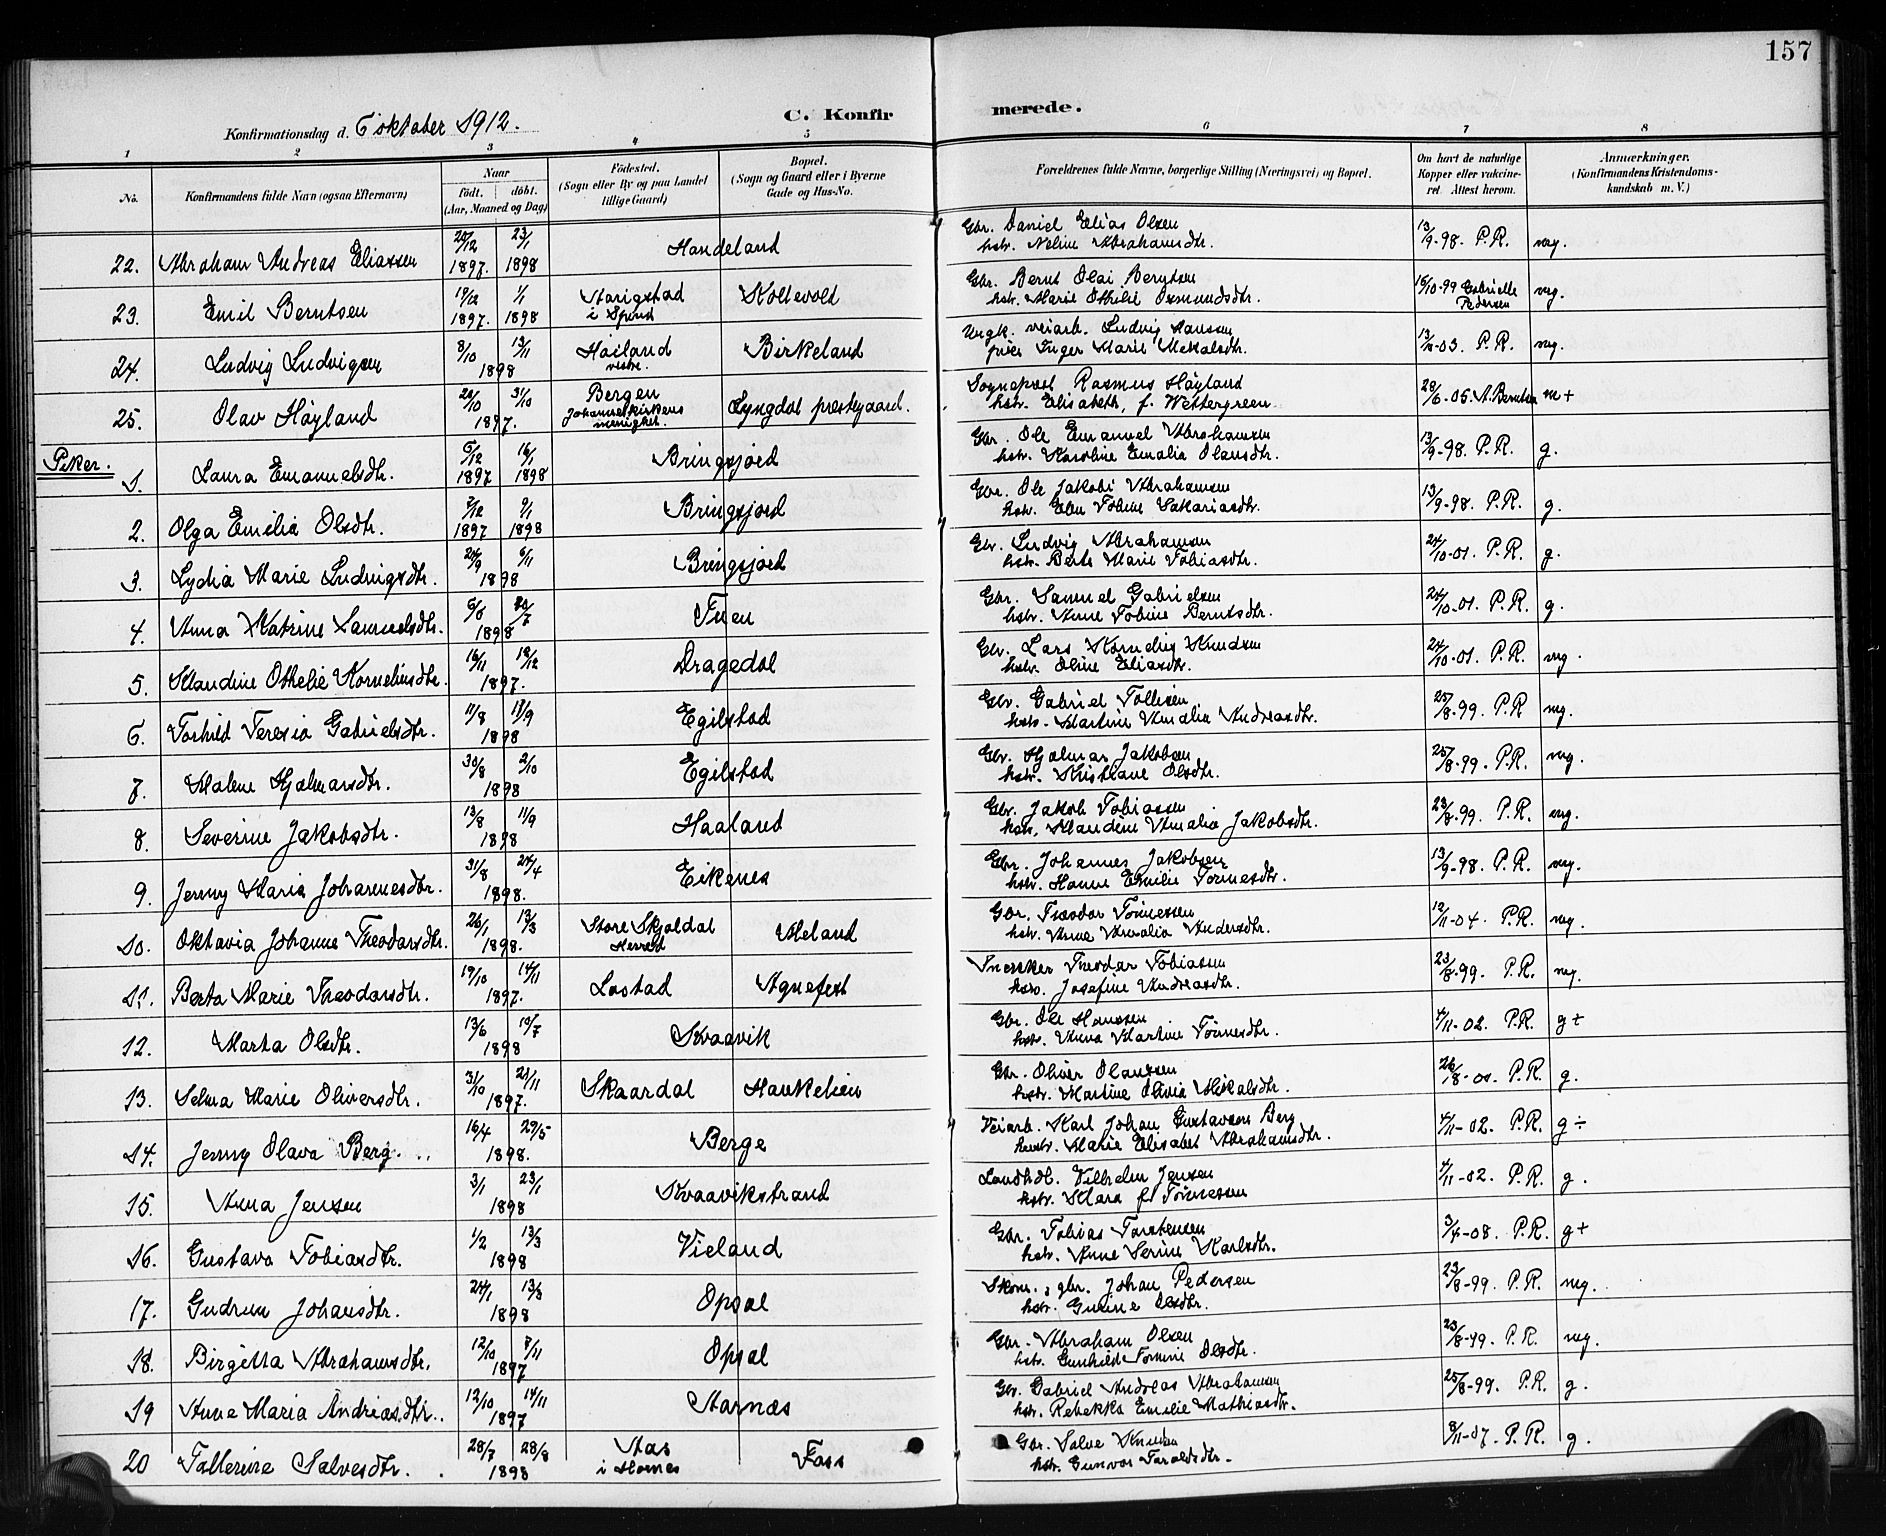 157
Konfirmationsdag d. 6 oktober 1912.
C. Konfirmerede.
1 2 3 4 5 6 7 8
No. Konfirmandens fulde Navn (ogsaa Efternavn) Naar født. døbt. (Aar, Maaned og Dag) Fødested. (Sogn eller By og paa Landet tillige Gaard) Bopæl. (Sogn og Gaard eller i Byerne Gade og Hus-No. Forældrenes fulde Navne, borgerlige Stilling (Næringsvei) og Bopæl. Om havt de naturlige Kopper eller vakcineret Attest herom. Anmærkninger. (Konfirmandens Kristendomskundskab m. V.)
22. Abraham Andreas Eliassen 20/12 1897. 23/1 1898 Handeland Gbr. Daniel Elias Olsen
hstr. Neline Abrahamsdtr. 13/9-98. P.R. mg.
23. Emil Berntsen 19/12 1897. 1/1 1898 i Spind Koltevold Gbr. Bernt Olai Berntsen
hstr. Marie Othelie Osmundsdtr. 15/10-99 Gabrielle Pedersen mg.
24. Ludvig Ludvigsen 8/10 13/11 1898 Høiland vestre. Birkeland Ungk. veiarb. Ludvig Hanssen
pike Inger Marie Mekalsdtr. 03. P.R. mg.
25. Olav Høyland 20/10 31/10 1897. Bergen Johanneskirkens menighet. Lyngdal prestegaard. Sognepræst Rasmus Høyland
hstr. Elisabeth, f. Wettergreen 28/6-05. A. Berntsen m+
Piker.
1. Laura Emanuelsdtr. 5/12 1897 16/1 1898 Bringsjord Gbr. Ole Emanuel Abrahamsen
hstr. Karoline Emalia Olausdtr. 13/9-98. P.R. g.
2. Olga Emilia Olsdtr. 7/12 1897 9/1 1898 Bringsjord Gbr. Ole Jakobi Abrahamsen
hstr. Elen Tobine Sakariasdtr. 13/9-98. P.R. g.
3. Lydia Marie Ludvigsdtr. 24/9 6/11 1898 Bringsjord Gbr. Ludvig Abrahamsen
hstr. Berte Marie Tobiasdtr. 24/10-01. P.R. g.
4. Anna Katrine Samuelsdtr. 1898 Tuen Gbr. Samuel Gabrielsen
hstr. Anne Tobine Berntsdtr. 24/10-01. P.R. g.
5. Klaudine Othelie Korneliusdtr. 16/11 18/12 1897. Dragedal Gbr. Lars Kornelius Knudsen
hstr. Oline Eliasdtr. 24/10-01. P.R. mg.
6. Torhild Teresia Gabrielsdtr. 11/8 18/9 1898 Egilstad Gbr. Gabriel Tollisen
hstr. Martine Amalia Andreasdtr. 25/8-99. P.R mg.
7. Malene Hjalmarsdtr. 30/8 2/10 1898 Egilstad Gbr. Hjalmar Jakobsen
hstr. Kristiane Olsdtr. 25/8-99. P.R. mg.
8. Severine Jakobsdtr. 13/8 11/9 1898 Haaland Gbr. Jakob Tobiassen
hstr. Klaudine Amalia Jakobsdtr. 23/8-99. P.R. mg.
9. Jenny Maria Johannesdtr. 24/4 1898. Eikenes Gbr. Johannes Jakobsen
hstr. Hanne Emilie Tønnesdtr. 13/9-98. P.R. mg.
10. Oktavia Johanne Theodorsdtr. 26/1 13/3 1898. Store Skjoldal Herred Meland Gbr. Teodor Tønnessen
hstr. Anne Amalia Andersdtr. 12/11-04. P.R. mg.
11. Berta Marie Theodorsdtr. 19/10 14/11 1897. Lostad Agnefest Snekker Theodor Tobiassen
hstr. Josefine Andreasdtr. 23/8-99. P.R. mg.
12. Marta Olsdtr. 13/6 10/7 1898 Kvaavik Gbr. Ole Hanssen
hstr. Anna Martine Tønnesdtr. 4/11-02. P.R. g+
13. Selma Marie Oliversdtr. 31/10 21/11 1897. Skaardal Haukelien Gbr. Oliver Olaussen
hstr. Martine Olivia Mikalsdtr. 26/8-01. P.R. g.
14. Jenny Olava Berg. 16/4 29/5 1898. Berge Veiarb. Karl Johan Gustavsen Berg
hustr. Marie Elisabet Abrahamsdtr. 4/11-02. P.R. g÷
15. Anna Jensen 3/1 23/1 1898 Kvaavikstrand Landhdl. Vilhelm Jensen
hstr. Klara f. Tønnessen 4/11-02. P.R. g.
16. Gustava Tobiasdtr. 1/2 13/3 1898 Vieland Gbr. Tobias Torstensen
hstr. Anne Serine Karlsdtr. 08. P.R. g+
17. Gudrun Johansdtr. 24/1 13/3 1898 Opsal Skom., gbr. Johan Pedersen
hstr. Gurine Olsdtr. 23/8-99. P.R. mg.
18. Birgitta Abrahamsdtr. 12/10 7/11 1897 Opsal Gbr. Abraham Olsen
hstr. Gunhild Tomine Olsdtr. 23/8-99. P.R. mg.
19 Anne Maria Andreasdtr. 12/10 14/11 1897 Aarnæs Gbr. Gabriel Andreas Abrahamsen
hstr. Rebekka Emelie Mathiasdtr. 25/8-99. P.R. g.
20 Tallerine Salvesdtr. 28/7 28/8 1898 Aas Foss Gbr. Salve Knudsen
hstr. Gunvor Taraldsdtr. 8/11-07. P.R. g.